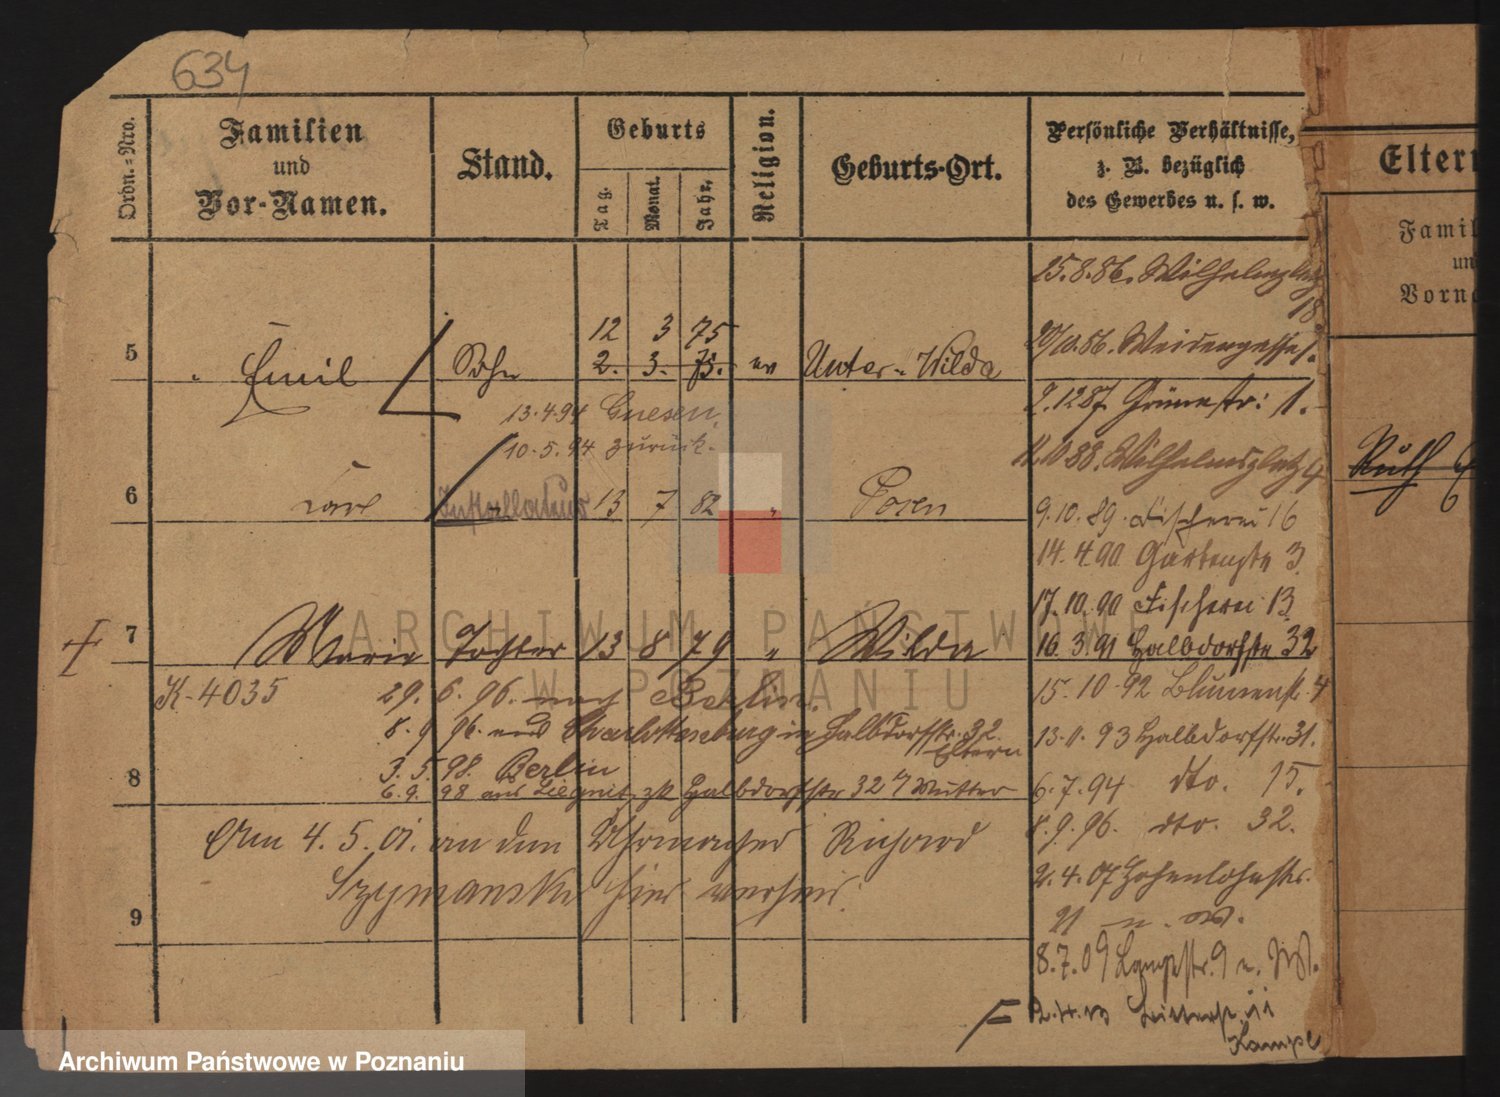 634
Ordn.=Nro.
Familien
und
Vor-Namen.
Stand.
Geburts
Tag.
Monat.
Jahr.
Religion.
Geburts-Ort.
Persönliche Verhältnisse,
z. B. bezüglich
des Gewerbes u. s. w.
Eltern
Famil
un
Vorna
15.8.86. Wilhelmsplatz
18
20/10.86. Weidengasse 1.
2.12 87. Grünestr: 1.
11.10 88. Wilhelmsplatz 4
9.10.89. Fischerei 16
14.4.90 Gartenstr 3.
17.10.90 Fischerei 13
16.3.91 Halbdorfstr 32
15.10.92 Blumenstr 4
13.11.93 Halbdorfstr. 31.
6.7.94 dto. 15.
8.9.96. dto. 32.
2.4.07 Hohenlohestr.
21 n. W.
8.7.09 Langestr. 9 n. W.
12 3 75
5 Emil Sohn 2. 3. 75. ev Unter-Wilda
13.4.94 Gnesen,
10.5.94 zurück.
6 Carl 13 7 82 " Posen
7 Marie Tochter 13 8 79 " Wilda
K-4035 29.6.96. nach Berlin.
8.9 96. aus Charlottenburg in Halbdorfstr. 32.
Eltern
3.5.98. Berlin
8 6.9. 98 aus Liegnitz zk Halbdorfstr 32 b/ Mutter
Am 4.5.01. an den Uhrmacher Richard
Szymanski hier verheir.
9
Ruth
Archiwum Państwowe w Poznaniu
ARCHIWUM PAŃSTWOWE
W POZNANIU